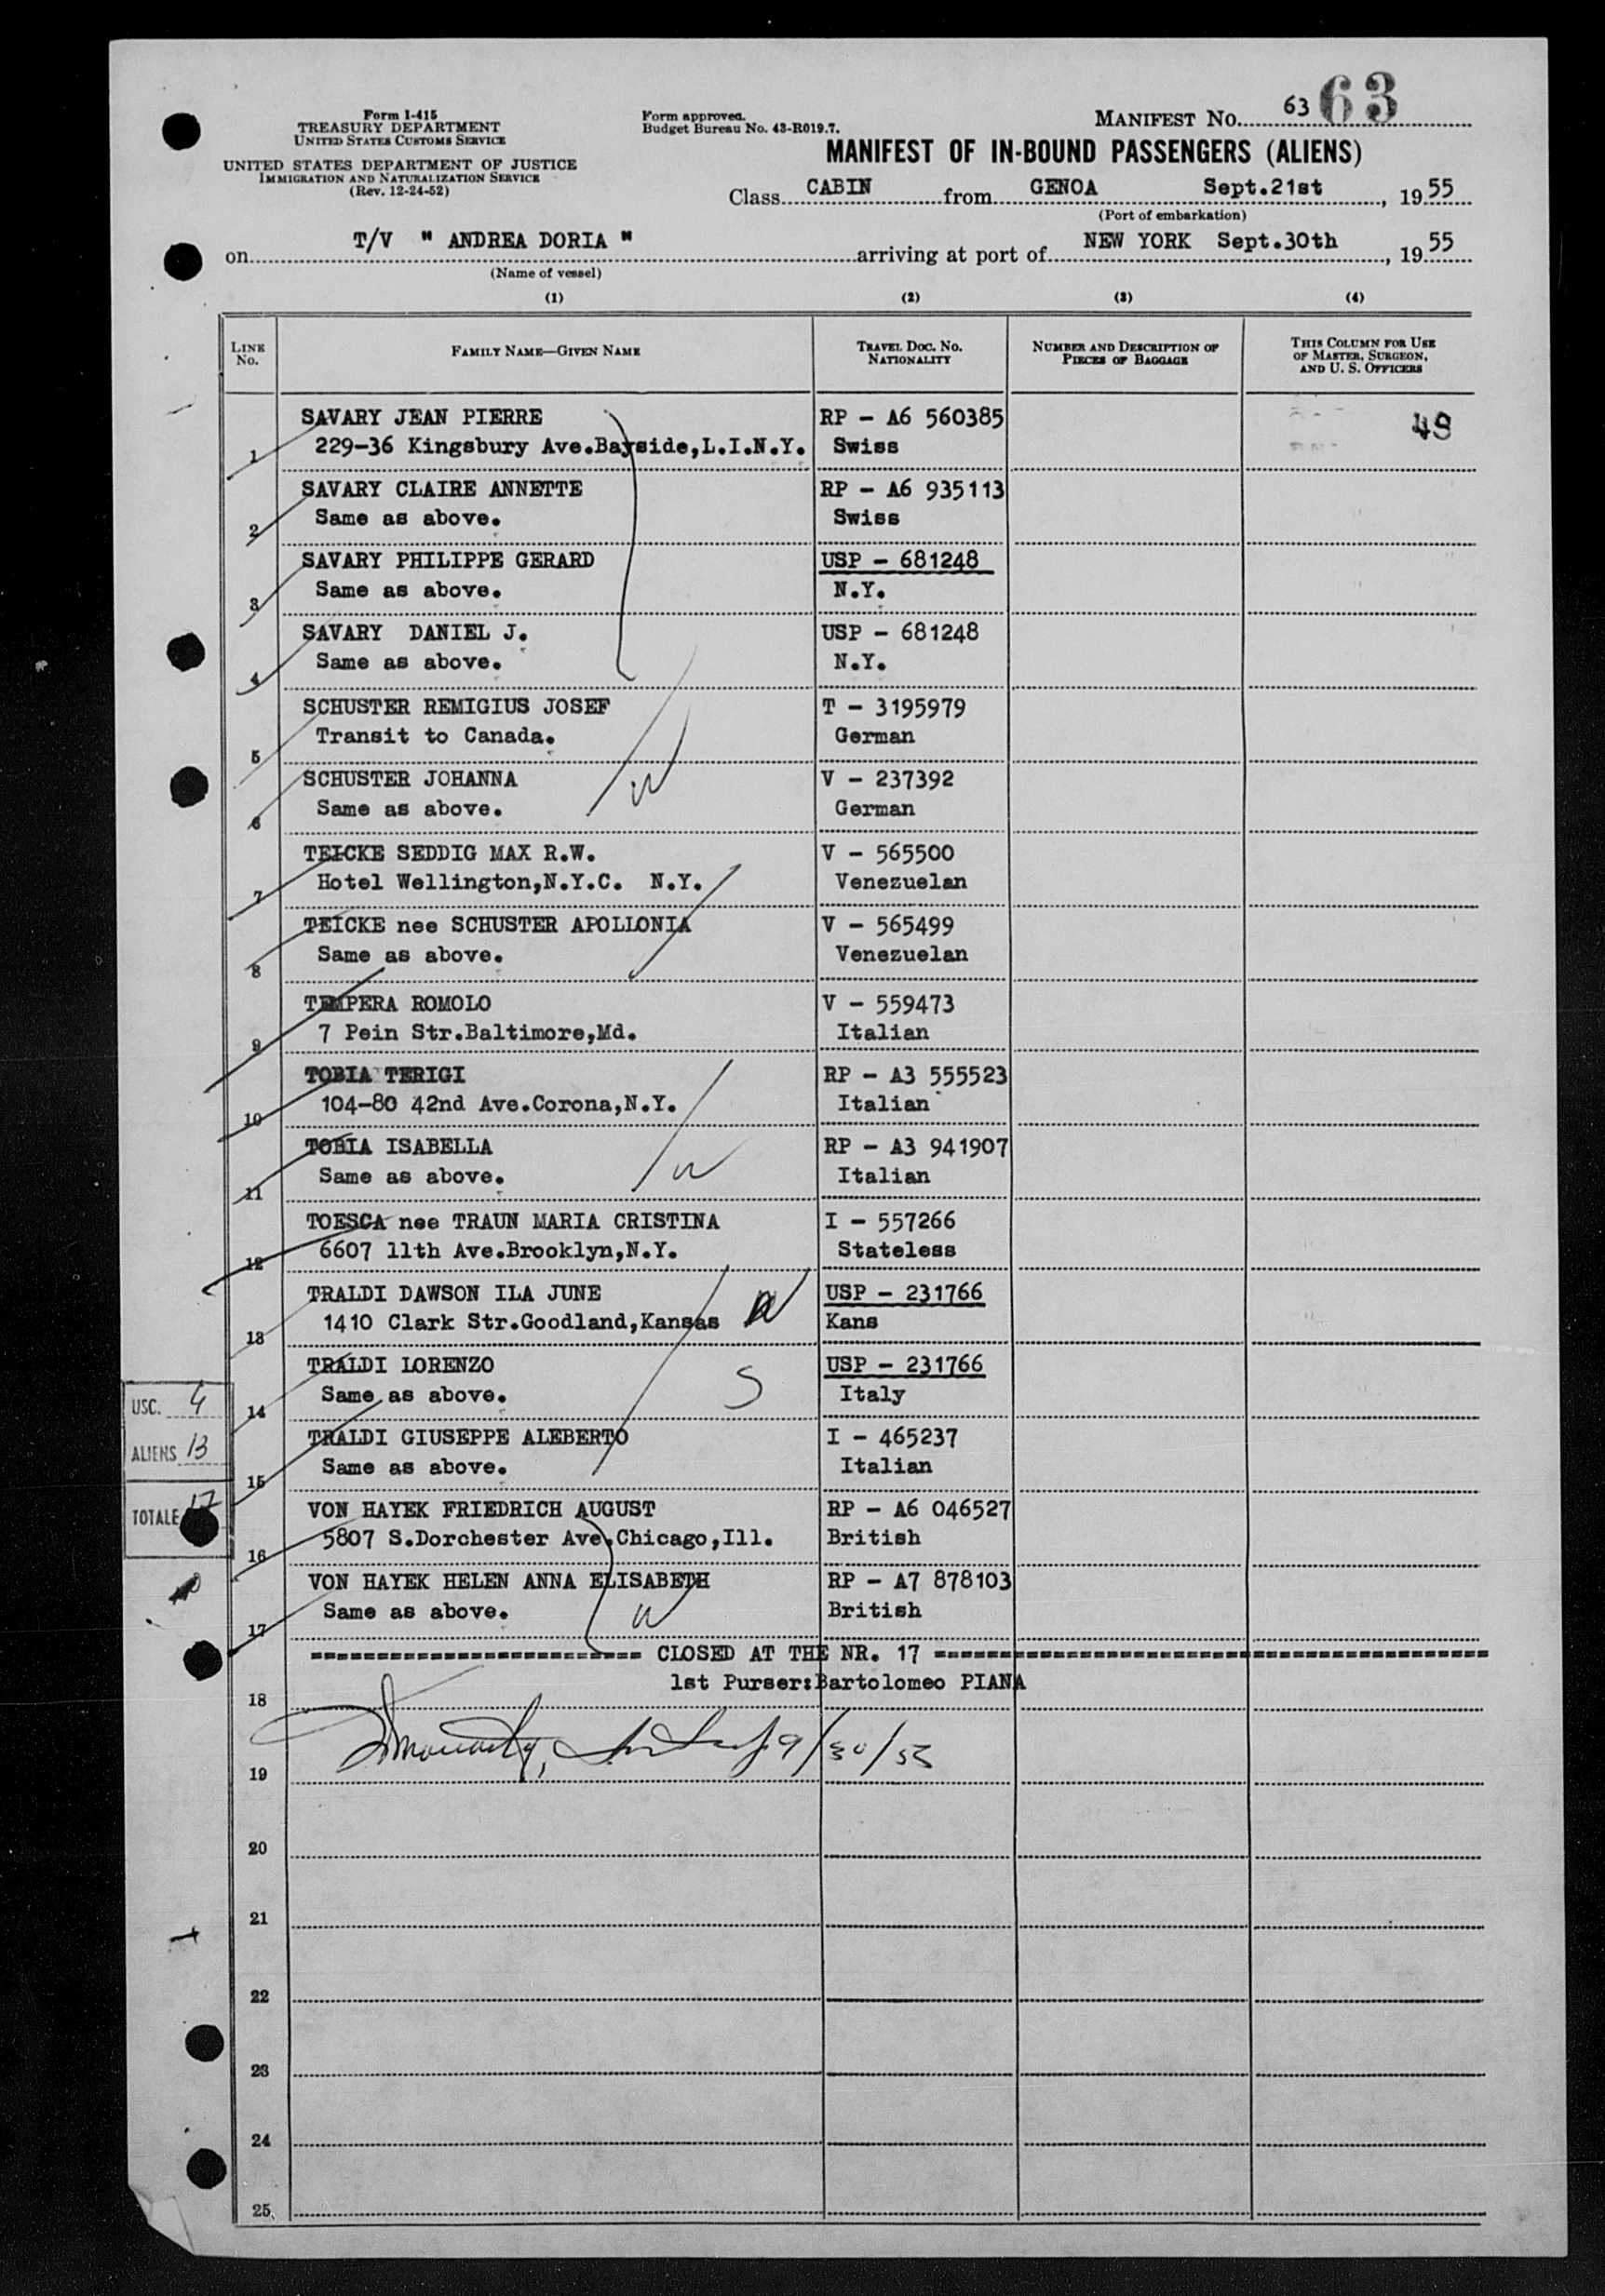 Form I-415
TREASURY DEPARTMENT
UNITED STATES CUSTOMS SERVICE
UNITED STATES DEPARTMENT OF JUSTICE
IMMIGRATION AND NATURALIZATION SERVICE
(Rev. 12-24-52)
Form approved.
Budget Bureau No. 43-R019.7.
MANIFEST NO. 63 63
MANIFEST OF IN-BOUND PASSENGERS (ALIENS)
Class CABIN from GENOA Sept.21st, 1955
(Port of embarkation)
on T/V " ANDREA DORIA " arriving at port of NEW YORK Sept.30th, 1955
(Name of vessel)
(1) (2) (3) (4)
LINE NO. FAMILY NAME—GIVEN NAME TRAVEL DOC. NO. NATIONALITY NUMBER AND DESCRIPTION OF PIECES OF BAGGAGE THIS COLUMN FOR USE OF MASTER, SURGEON, AND U. S. OFFICERS
SAVARY JEAN PIERRE RP - A6 560385 48
1 229-36 Kingsbury Ave.Bayside,L.I.N.Y. Swiss
SAVARY CLAIRE ANNETTE RP - A6 935113
2 Same as above. Swiss
SAVARY PHILIPPE GERARD USP - 681248
3 Same as above. N.Y.
SAVARY DANIEL J. USP - 681248
4 Same as above. N.Y.
SCHUSTER REMIGIUS JOSEF T - 3195979
5 Transit to Canada. German
SCHUSTER JOHANNA V - 237392
6 Same as above. German
TEICKE SEDDIG MAX R.W. V - 565500
7 Hotel Wellington,N.Y.C. N.Y. Venezuelan
TEICKE nee SCHUSTER APOLLONIA V - 565499
8 Same as above. Venezuelan
TEMPERA ROMOLO V - 559473
9 7 Pein Str.Baltimore,Md. Italian
TOBIA TERIGI RP - A3 555523
10 104-80 42nd Ave.Corona,N.Y. Italian
TOBIA ISABELLA RP - A3 941907
11 Same as above. Italian
TOESCA nee TRAUN MARIA CRISTINA I - 557266
12 6607 11th Ave.Brooklyn,N.Y. Stateless
TRALDI DAWSON ILA JUNE USP - 231766
13 1410 Clark Str.Goodland,Kansas Kans
TRALDI LORENZO USP - 231766
14 Same as above. Italy
TRALDI GIUSEPPE ALEBERTO I - 465237
15 Same as above. Italian
VON HAYEK FRIEDRICH AUGUST RP - A6 046527
16 5807 S.Dorchester Ave.Chicago,Ill. British
VON HAYEK HELEN ANNA ELISABETH RP - A7 878103
17 Same as above. British
CLOSED AT THE NR. 17
1st Purser:Bartolomeo PIANA
18
9/30/55
19
20
21
22
23
24
25
USC. 4
ALIENS 13
TOTALE 17